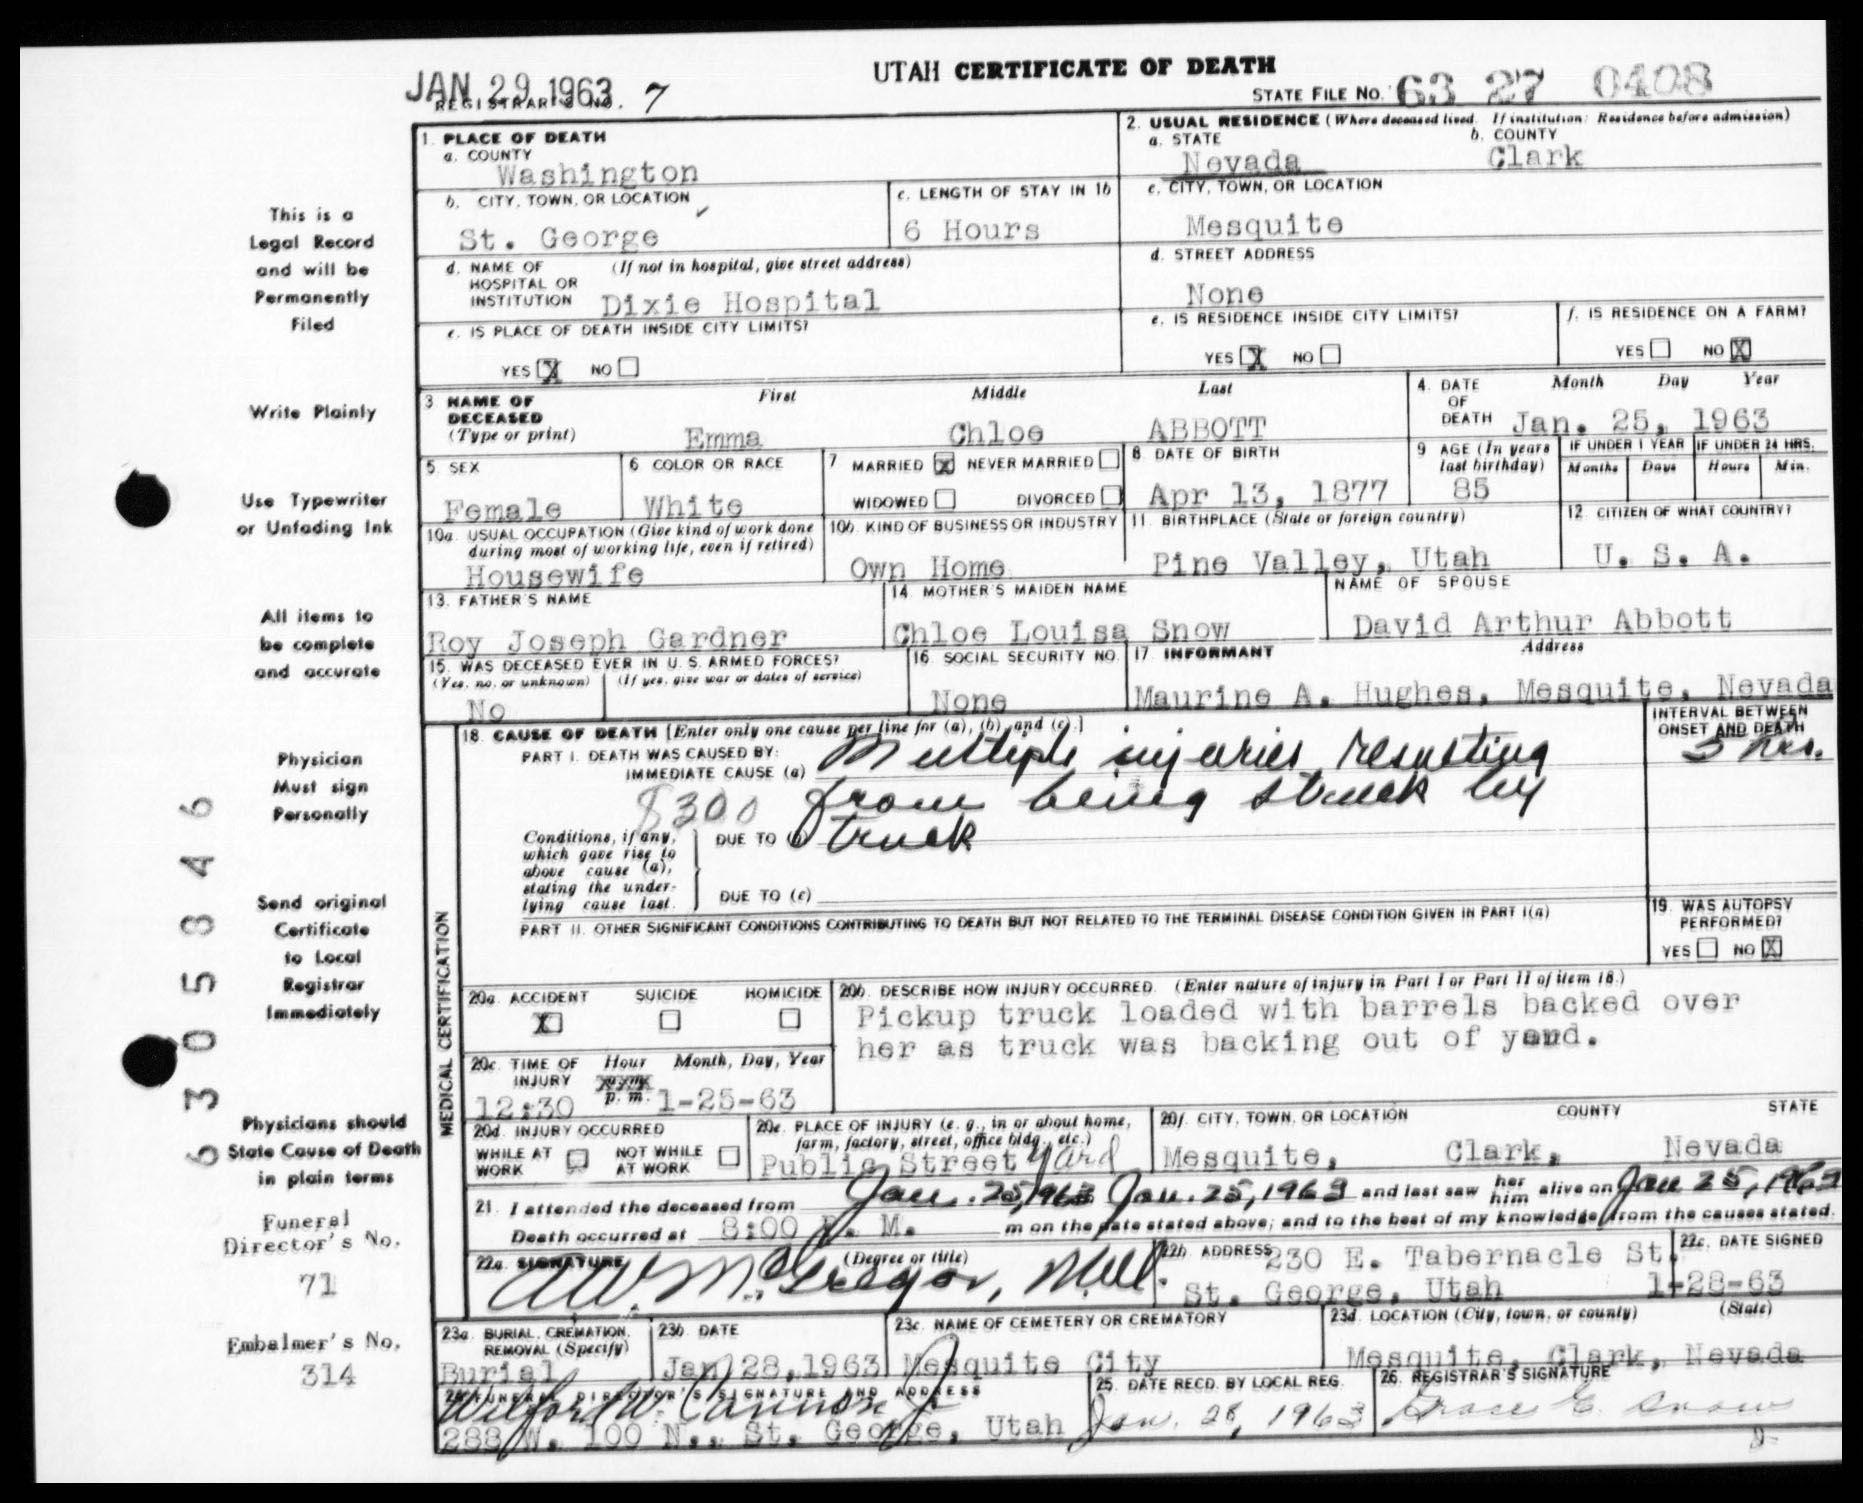 UTAH CERTIFICATE OF DEATH
JAN 29 1963
REGISTRAR'S NO. 7
STATE FILE NO. 63 27 0408
1. PLACE OF DEATH
a. COUNTY
Washington
2. USUAL RESIDENCE (Where deceased lived. If institution: Residence before admission)
a. STATE b. COUNTY
Nevada Clark
b. CITY, TOWN, OR LOCATION
St. George
c. LENGTH OF STAY IN 1b
6 Hours
c. CITY, TOWN, OR LOCATION
Mesquite
d. NAME OF HOSPITAL OR INSTITUTION (If not in hospital, give street address)
Dixie Hospital
d. STREET ADDRESS
None
e. IS PLACE OF DEATH INSIDE CITY LIMITS?
YES X NO
e. IS RESIDENCE INSIDE CITY LIMITS?
YES X NO
f. IS RESIDENCE ON A FARM?
YES NO X
3. NAME OF DECEASED (Type or print)
First Middle Last
Emma Chloe ABBOTT
4. DATE OF DEATH Month Day Year
Jan. 25, 1963
5. SEX
Female
6. COLOR OR RACE
White
7. MARRIED X NEVER MARRIED
WIDOWED DIVORCED
8. DATE OF BIRTH
Apr 13, 1877
9. AGE (In years last birthday)
85
IF UNDER 1 YEAR
Months Days
IF UNDER 24 HRS.
Hours Min.
10a. USUAL OCCUPATION (Give kind of work done during most of working life, even if retired)
Housewife
10b. KIND OF BUSINESS OR INDUSTRY
Own Home
11. BIRTHPLACE (State or foreign country)
Pine Valley, Utah
12. CITIZEN OF WHAT COUNTRY?
U. S. A.
13. FATHER'S NAME
Roy Joseph Gardner
14. MOTHER'S MAIDEN NAME
Chloe Louisa Snow
NAME OF SPOUSE
David Arthur Abbott
15. WAS DECEASED EVER IN U. S. ARMED FORCES?
(Yes, no, or unknown) (If yes, give war or dates of service)
No
16. SOCIAL SECURITY NO.
None
17. INFORMANT Address
Maurine A. Hughes, Mesquite, Nevada
MEDICAL CERTIFICATION
18. CAUSE OF DEATH [Enter only one cause per line for (a), (b), and (c).]
PART I. DEATH WAS CAUSED BY:
IMMEDIATE CAUSE (a) Multiple injuries resulting
from being struck by
Conditions, if any, which gave rise to above cause (a), stating the underlying cause last.
DUE TO (b) truck
DUE TO (c)
INTERVAL BETWEEN ONSET AND DEATH
hrs.
PART II. OTHER SIGNIFICANT CONDITIONS CONTRIBUTING TO DEATH BUT NOT RELATED TO THE TERMINAL DISEASE CONDITION GIVEN IN PART I(a)
19. WAS AUTOPSY PERFORMED?
YES NO X
20a. ACCIDENT SUICIDE HOMICIDE
X
20b. DESCRIBE HOW INJURY OCCURRED. (Enter nature of injury in Part I or Part II of item 18.)
Pickup truck loaded with barrels backed over
her as truck was backing out of yard.
20c. TIME OF INJURY Hour Month, Day, Year
p. m.
12:30 1-25-63
20d. INJURY OCCURRED
WHILE AT WORK NOT WHILE AT WORK
20e. PLACE OF INJURY (e. g., in or about home, farm, factory, street, office bldg., etc.)
Public Street Yard
20f. CITY, TOWN, OR LOCATION COUNTY STATE
Mesquite, Clark, Nevada
21. I attended the deceased from Jan. 25, 1963 Jan. 25, 1963 and last saw her him alive on Jan 25, 1963
Death occurred at 8:00 P. M. m on the date stated above; and to the best of my knowledge from the causes stated.
22a. SIGNATURE (Degree or title)
A W McGregor, M.D.
22b. ADDRESS
230 E. Tabernacle St.
St. George, Utah
22c. DATE SIGNED
1-28-63
23a. BURIAL, CREMATION, REMOVAL (Specify)
Burial
23b. DATE
Jan 28, 1963
23c. NAME OF CEMETERY OR CREMATORY
Mesquite City
23d. LOCATION (City, town, or county) (State)
Mesquite, Clark, Nevada
24. FUNERAL DIRECTOR'S SIGNATURE AND ADDRESS
Wilford W. Cannon Jr
288 W. 100 N., St. George, Utah
25. DATE RECD. BY LOCAL REG.
Jan. 28, 1963
26. REGISTRAR'S SIGNATURE
Grace E. Snow
This is a
Legal Record
and will be
Permanently
Filed
Write Plainly
Use Typewriter
or Unfading Ink
All items to
be complete
and accurate
Physician
Must sign
Personally
Send original
Certificate
to Local
Registrar
Immediately
Physicians should
State Cause of Death
in plain terms
Funeral
Director's No.
71
Embalmer's No.
314
6305846